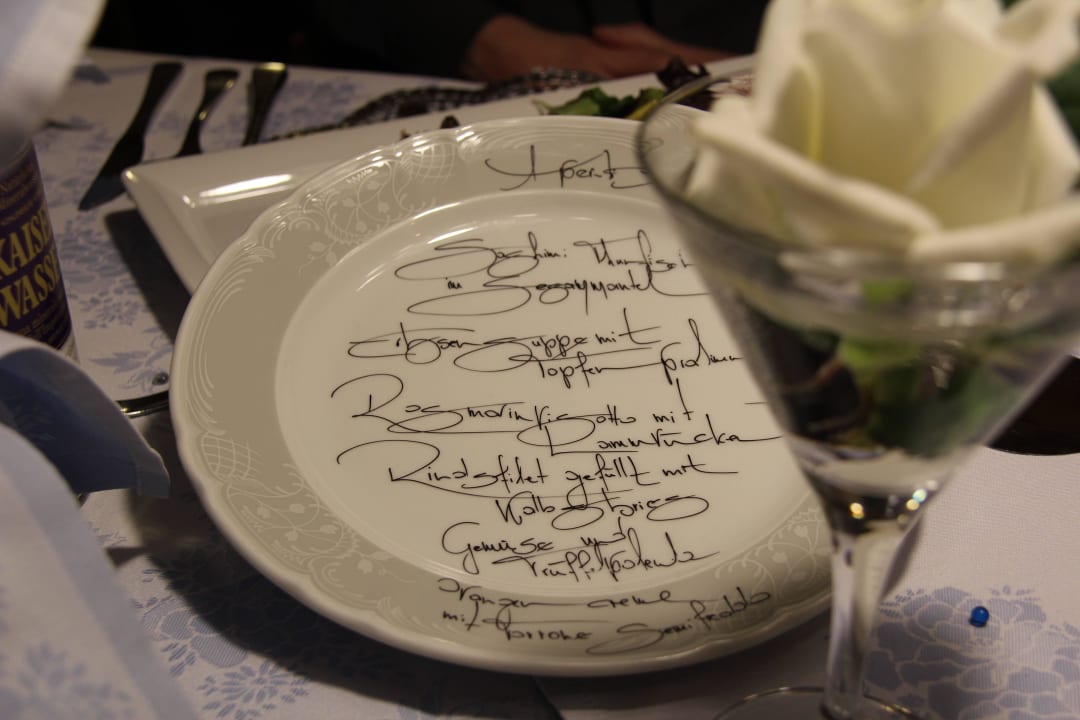 KAISER
WASS
Aperit
Sashimi Thunfisch
im Sesammantel
Erbsensuppe mit
Topfenpralinen
Rosmarinrisotto mit
Lammrücken
Rindsfilet gefüllt mit
Kalbsbries
Gemüse und
Trüffelpolenta
Orangencreme
mit Torrone Semifreddo